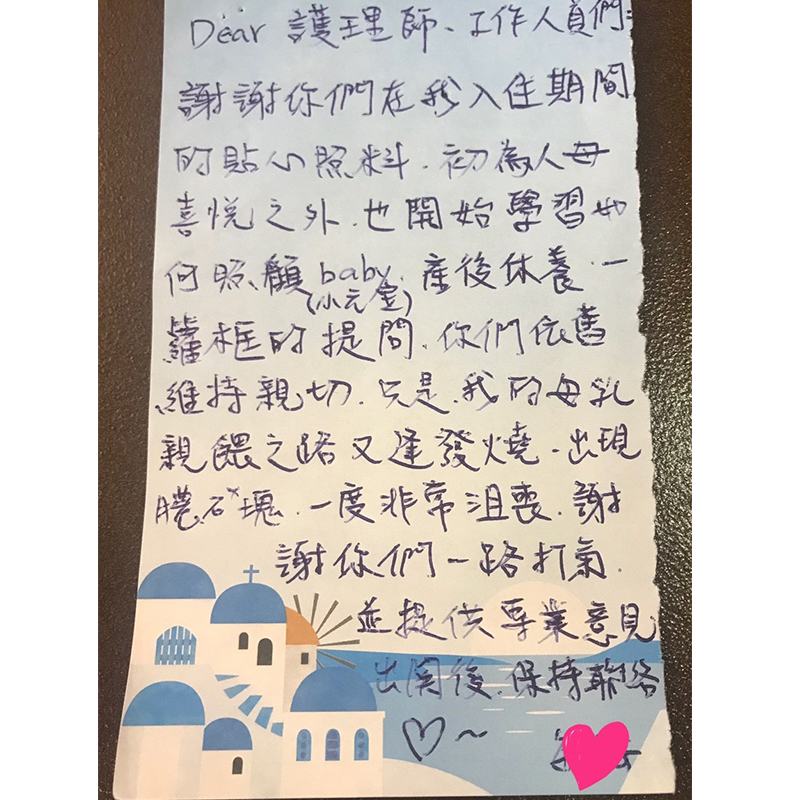 Dear 護理師、工作人員們:
謝謝你們在我入住期間
的貼心照料.初為人母
喜悅之外.也開始學習如
何照顧baby.產後休養.一
(小元宝)
籮框的提問.你們依舊
維持親切.只是.我的母乳
親餵之路又逢發燒.出現
膿、石塊.一度非常沮喪.謝
謝你們一路打氣.
並提供專業意見
出關後.保持聯络
♡~